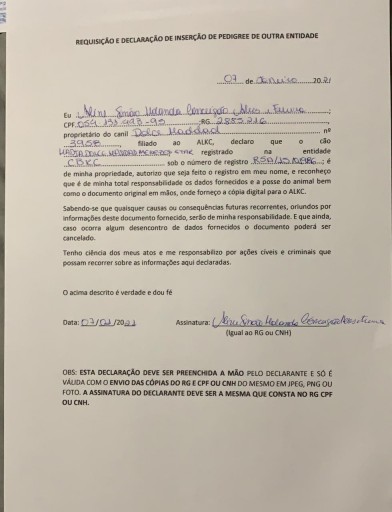 REQUISIÇÃO E DECLARAÇÃO DE INSERÇÃO DE PEDIGREE DE OUTRA ENTIDADE
07 de Janeiro 2021
Eu Aline Simão Holanda
CPF RG
proprietário do canil Dolce Haddad nº
3958, filiado ao ALKC, declaro que o cão
registrado na entidade
CBKC sob o número de registro ; é
de minha propriedade, autorizo que seja feito o registro em meu nome, e reconheço
que é de minha total responsabilidade os dados fornecidos e a posse do animal bem
como o documento original em mãos, onde forneço a cópia digital para o ALKC.
Sabendo-se que quaisquer causas ou consequências futuras recorrentes, oriundos por
informações deste documento fornecido, serão de minha responsabilidade. E que ainda,
caso ocorra algum desencontro de dados fornecidos o documento poderá ser
cancelado.
Tenho ciência dos meus atos e me responsabilizo por ações cíveis e criminais que
possam recorrer sobre as informações aqui declaradas.
O acima descrito é verdade e dou fé
Data: 07/01/2021 Assinatura: Aline Simão Holanda
(Igual ao RG ou CNH)
OBS: ESTA DECLARAÇÃO DEVE SER PREENCHIDA A MÃO PELO DECLARANTE E SÓ É
VÁLIDA COM O ENVIO DAS CÓPIAS DO RG E CPF OU CNH DO MESMO EM JPEG, PNG OU
FOTO. A ASSINATURA DO DECLARANTE DEVE SER A MESMA QUE CONSTA NO RG CPF
OU CNH.